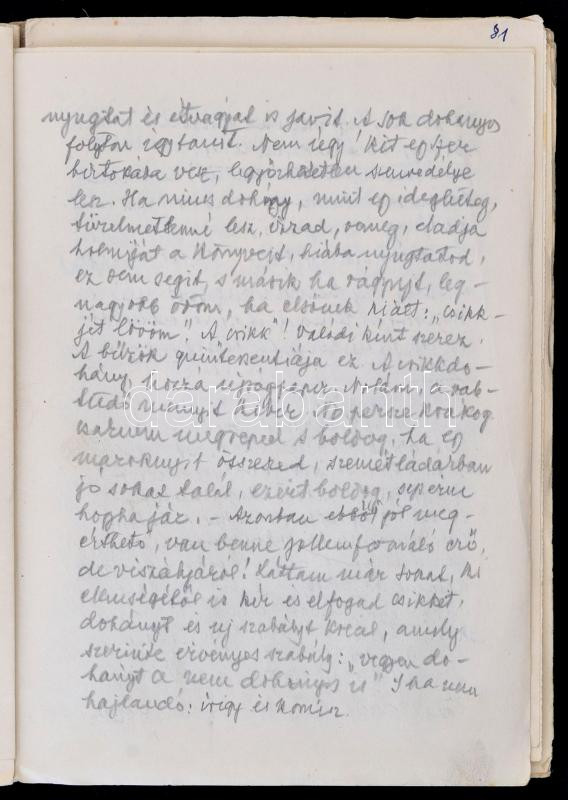 81
nyugtat és étvágyat is javit. A sok dohányos
folyton igy tanít. Nem úgy! Kit egyszer
birtokába vesz, legyőzhetetlen szenvedélye
lesz. Ha nincs dohány, mint egy idegbeteg,
türelmetlenné lesz, izzad, remeg, eladja
holmiját a könyveit, hiába nyugtatod,
ez sem segit, s másik ha rágyujt, leg-
nagyobb öröm, ha elsőnek kiált: „csikk-
jét lövöm". A csikk"! valódi kínt szerez.
A bűzök quintessentiája ez. A csikkdo-
hány, hozzá ujságpapir. Nálam a rab-
tüdő mennyit kibir. No persze krákog
s boldog, ha egy
maroknyit összeszed, szemétládában
jó sokat talál, ezért boldog, seperni
hogyha jár. – Azonban ebből jól meg-
érthető, van benne jellemformáló erő,
de visszájáról! Láttam már sokat, ki
ellenségétől is kér és elfogad csikket,
dohányt és uj szabályt kreál, amely
szerinte érvényes szabály: „vegyen do-
hányt a nem dohányos is" S ha nem
hajlandó: irigy és komisz.
darabanth